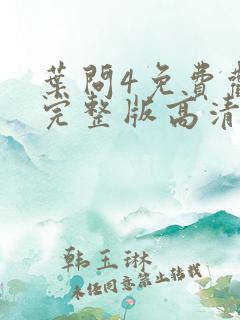 葉問4免費觀
完整版高清
韩玉琳
未经同意禁止转载